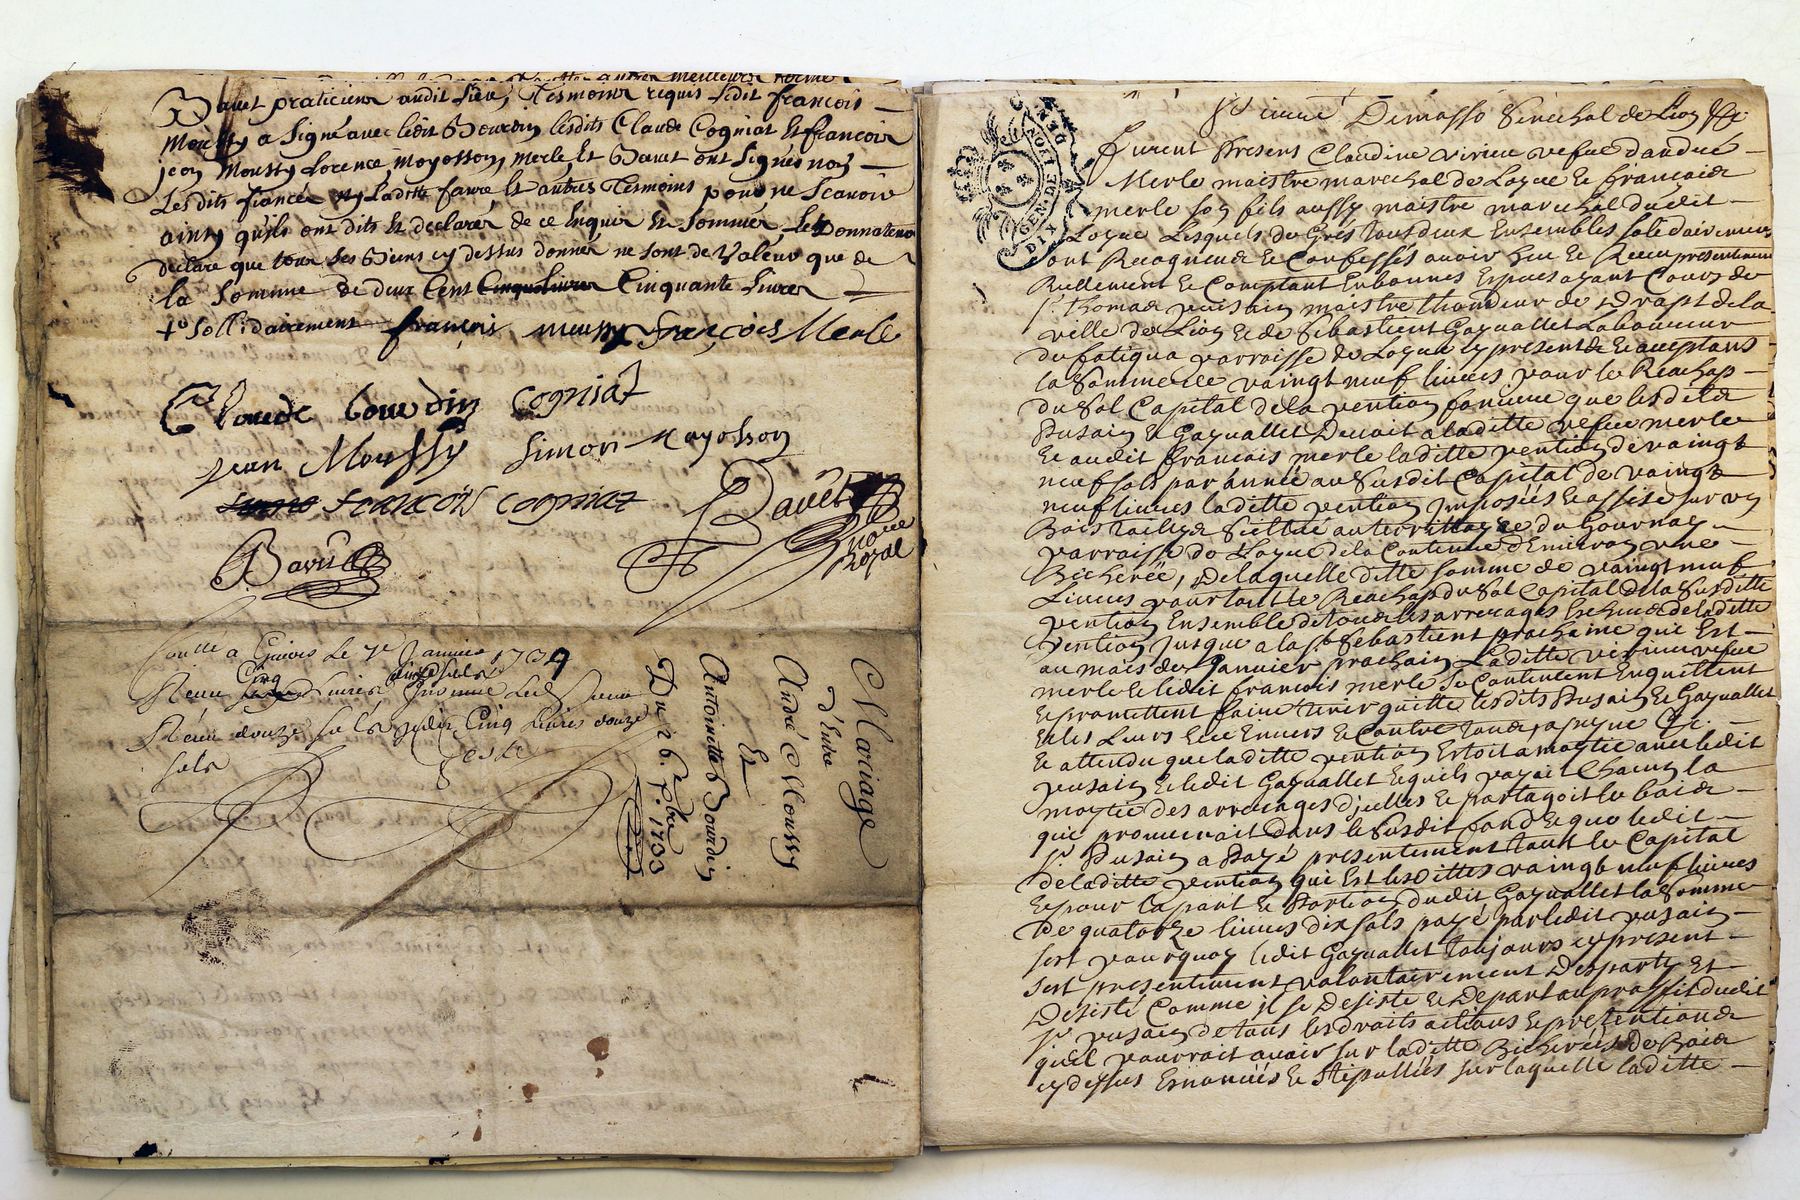 Bavet praticien audit lieu, Tesmoins requis ledit francois
Moussy a signé avec ledit Bourdin lesdits Claude Cogniat et francois
jean Moussy Lorence, Moyosson, Merle et Bavet ont signés non
Lesdits fiancés ny Laditte favre et autres Tesmoins pour ne scavoir
ainsy qu'ils ont dits et declarér de ce enquis et sommés, Le Donnateur
declare que tous ses Biens cy dessus donnér ne sont de valeur que de
la somme de deux Cens Cinquante Livres
sollidairement françois moussy françois Merle
Claude bourdin Cogniat
jean Moussy Simon Mayosson
francois cogniat Bavet
Bavet
nore
Royal
a Givors Le 7e Janvier 1734
Reçu Cinq Livres
Reçu douze sols Cinq Livres douze
sols
Mariage
D'Entre
André Moussy
Et
Antoinette Bourdin
Du 26. 7bre. 1733
GEN. DE LYON
DIX DEN
Sénéchal de Lion &c.
furent Presens Claudine virieu vefue dandré
Merle maistre marechal de Loyue et francois
merle son fils aussy maistre marechal dudit
Loyue Lesquels de Gres tous deux Ensembles solidairement
ont Recogneus et Confessés avoir heu et Receu presentement
Reellement et Comptant En bonnes Especes ayant Cours de
sr. thomas pusain maistre thondeur de Draps de la
ville de Lion et de Sebastient Gayuallet Laboureur
du fatigua parroisse de Loyue cy present et acceptans
la Somme de vaingt neuf liures pour le Reachap
du Sol Capital de la pention fonciere que lesdits
Pusain et Gayuallet Devoit a laditte vefue merle
et audit francois merle laditte pention de vaingt
neuf sols par année au susdit Capital de vaingt
neuf liures laditte pention Imposées et assise sur vn
Bois taillys Scittué au territtoyre du Gournay
parroisse de Loyue de la Contenue d'Environ vne
Bicherée, De laquelle ditte somme de vaingt neuf
Liures pour tout le Reachap du Sol Capital de la Susditte
pention Ensemble de tous les arrerages Escheus de laditte
pention Jusque a la st Sebastient prochaine qui Est
au mois de Janvier prochain. Laditte virieu vefue
merle et ledit francois merle se Contentent En quittent
et promettent faire tenir quitte lesdits Pusain et Gayuallet
et les Leurs et ce Envers et Contre tous, a peyne &c.
Et attendu que laditte pention Estoit a moytie avec ledit
pusain et ledit Gayuallet et quils payait Chacun la
moytie des arrerages d'jcelles et partagoit le bois
qui prouenoit dans le Susdit fond et que ledit
sr. Pusain a Payé presentement tout le Capital
de laditte pention qui Est lesdittes vaingt neuf liures
et pour la part et Portion dudit Gayuallet la Somme
De quatorze liures dix sols payé par ledit pusain
sest pourquoy ledit Gayuallet toujours cy present
sest presentement volontairement Desparty Et
Desisté Comme il se Desiste et Depart au proffit dudit
sr. pusain de tous les droits actions et pretentions
quil pourroit auoir sur laditte Bicherée de Bois
cy dessus Enoncées et Stipullées sur laquelle laditte